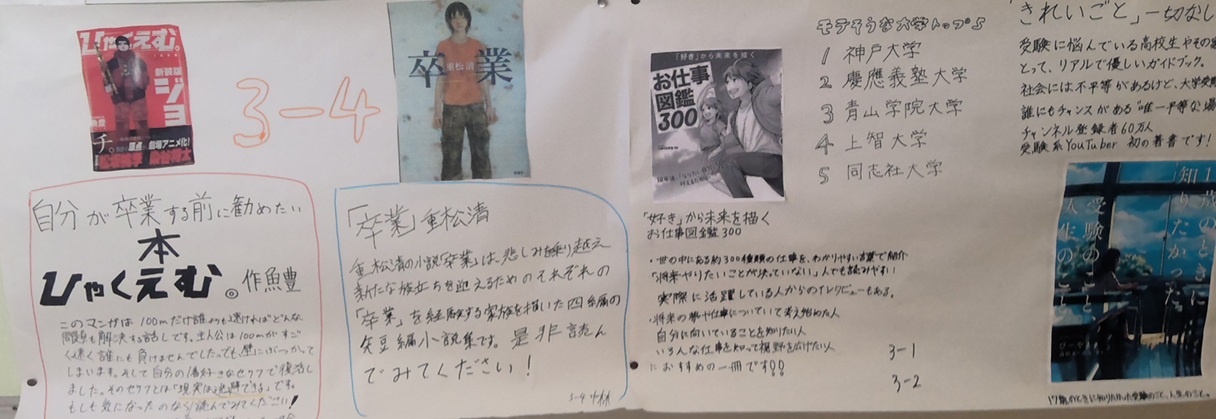 ひゃくえむ。
新装版
3-4
卒業
重松清
自分が卒業する前に勧めたい
本
ひゃくえむ。作魚豊
このマンガは100mだけ誰よりも速ければどんな
問題も解決する話しです。主人公は100mがすご
く速く誰にも負けませんでした。でも、壁にぶつかって
しまいます。そして自分の
ました。そのセリフとは「現実は逃避できる」です。
もしも気になったのなら読んでみてください!
「卒業」重松清
重松清の小説「卒業」は、悲しみを乗り越え
新たな旅立ちを迎えるためのそれぞれの
「卒業」を経験する家族を描いた四編の
短編小説集です。是非読ん
でみてください!
3-4
「好き」から未来を描く
お仕事
図鑑
300
「好き」から未来を描く
お仕事図鑑300
・世の中にある約300種類の仕事を、わかりやすい言葉で紹介
「将来やりたいことが決っていない」人でも読みやすい
実際に活躍している人からのインタビューもある。
・将来の夢や仕事についていて考え始めた人
自分に向いていることを知りたい人
いろんな仕事を知って視野を広げたい人
におすすめの一冊です!!
3-1
3-2
モテそうな大学トップ5
1 神戸大学
2 慶應義塾大学
3 青山学院大学
4 上智大学
5 同志社大学
きれいごと」一切なし
受験に悩んでいる高校生やその
とって、リアルで優しいガイドブック。
社会には不平等があるけど、大学受験
誰にもチャンスがある"唯一平等な場
チャンネル登録者60万人
受験系YouTuber 初の著書です!
1歳のときに
知りたかった
受験のこと、
人生のこと。
17歳のときに知りたかった受験のこと、人生のこと。